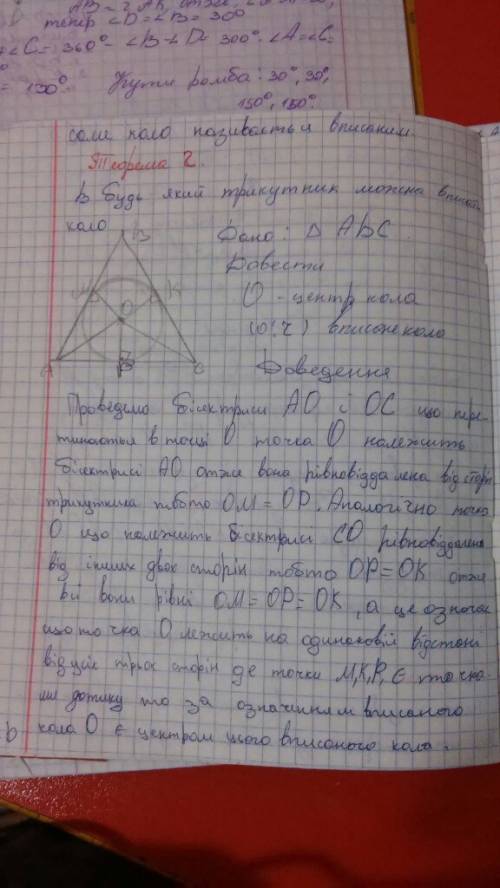 AB = 2 AK,
тепер ∠D = ∠B = 30°
∠C = 360° - ∠B - ∠D = 300° ∠A = ∠C =
= 150° Кути ромба: 30°, 30°,
150°, 150°
саме коло називається вписаним.
Теорема 2.
В будь який трикутник можна вписати
коло
Дано: Δ ABC
Довести
O - центр кола
(O; r) вписане коло
Доведення
B
M
K
O
A
P
C
Проведемо бісектриси AO і OC що пере-
тинаються в точці O точка O належить
бісектрисі AO отже вона рівновіддалена від сторін
трикутника тобто OM = OP. Аналогічно точка
O що належить бісектрисі CO рівновіддалена
від інших двох сторін тобто OP = OK отже
всі вони рівні OM = OP = OK, а це означає
що точка O лежить на одинаковій відстані
від усіх трьох сторін де точки M, K, P, є точка-
ми дотику то за означенням вписаного
кола O є центром цього вписаного кола.